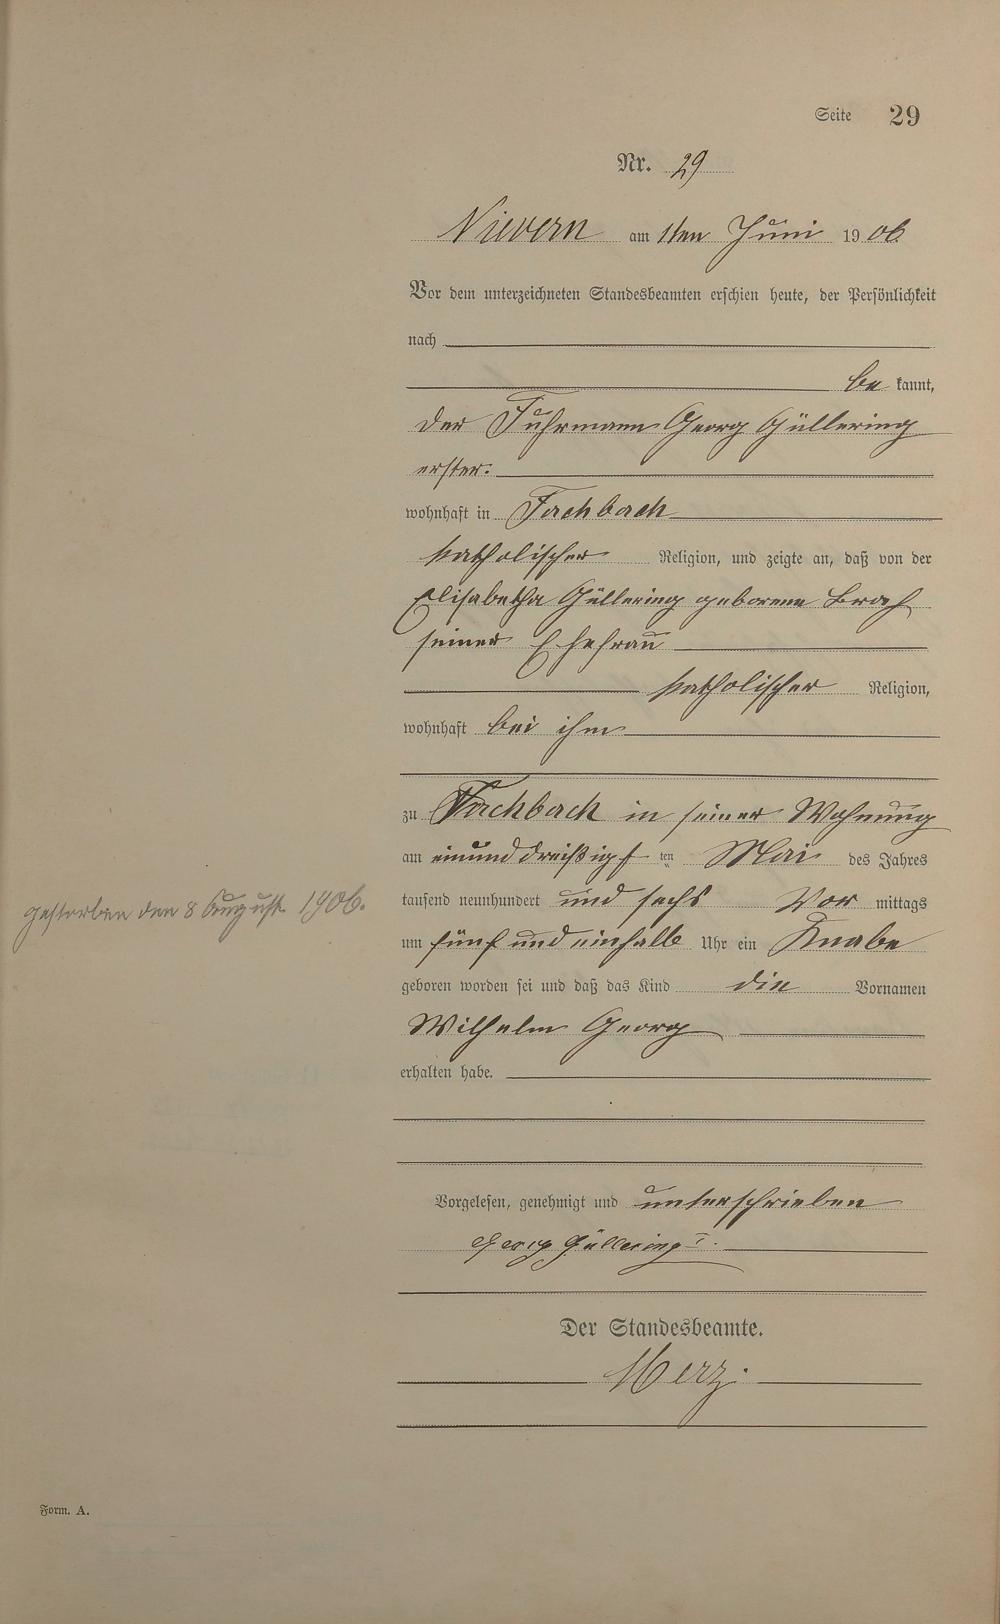 Seite 29
Nr. 29
Nievern am 1ten Juni 1906
Vor dem unterzeichneten Standesbeamten erschien heute, der Persönlichkeit
nach
be kannt,
der Fuhrmann Georg Güllering
erster.
wohnhaft in Fachbach
katholischer Religion, und zeigte an, daß von der
Elisabetha Güllering geborene
seiner Ehefrau
katholischer Religion,
wohnhaft bei ihm
zu Fachbach in seiner Wohnung
am einunddreißigsten Mai des Jahres
tausend neunhundert und sechs Vor mittags
um fünf und einhalb Uhr ein Knabe
gestorben den 8 August 1906.
geboren worden sei und daß das Kind die Vornamen
Wilhelm Georg
erhalten habe.
Vorgelesen, genehmigt und unterschrieben
Georg Güllering I.
Der Standesbeamte.
Merz.
Form. A.